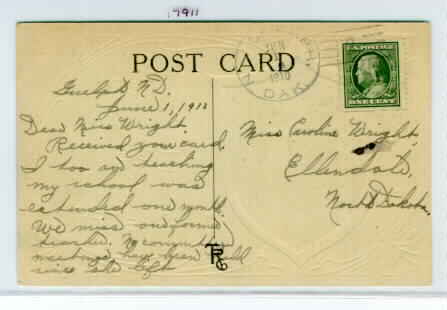 7911
POST CARD
JUN
1910
DAK.
U.S. POSTAGE
ONE CENT
Guelph N.D.
June 1, 1910
Dear Miss Wright.
Received your card.
I too am teaching
my school was
extended one month.
We miss our former
teacher. No
meetings have been held
since she left
Miss Caroline Wright,
Ellendale,
North Dakota.